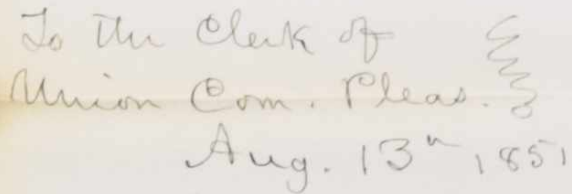 To the Clerk of
Union Com. Pleas.
Aug. 13th 1851